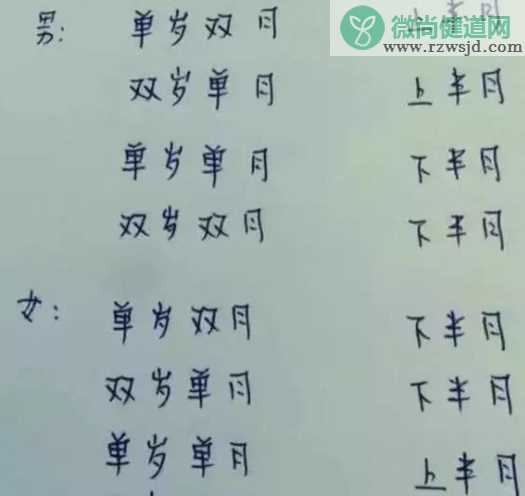 微尚健道网
www.rzwsjd.com
男: 单岁双月 上半月
双岁单月 上半月
单岁单月 下半月
双岁双月 下半月
女: 单岁双月 下半月
双岁单月 下半月
单岁单月 上半月